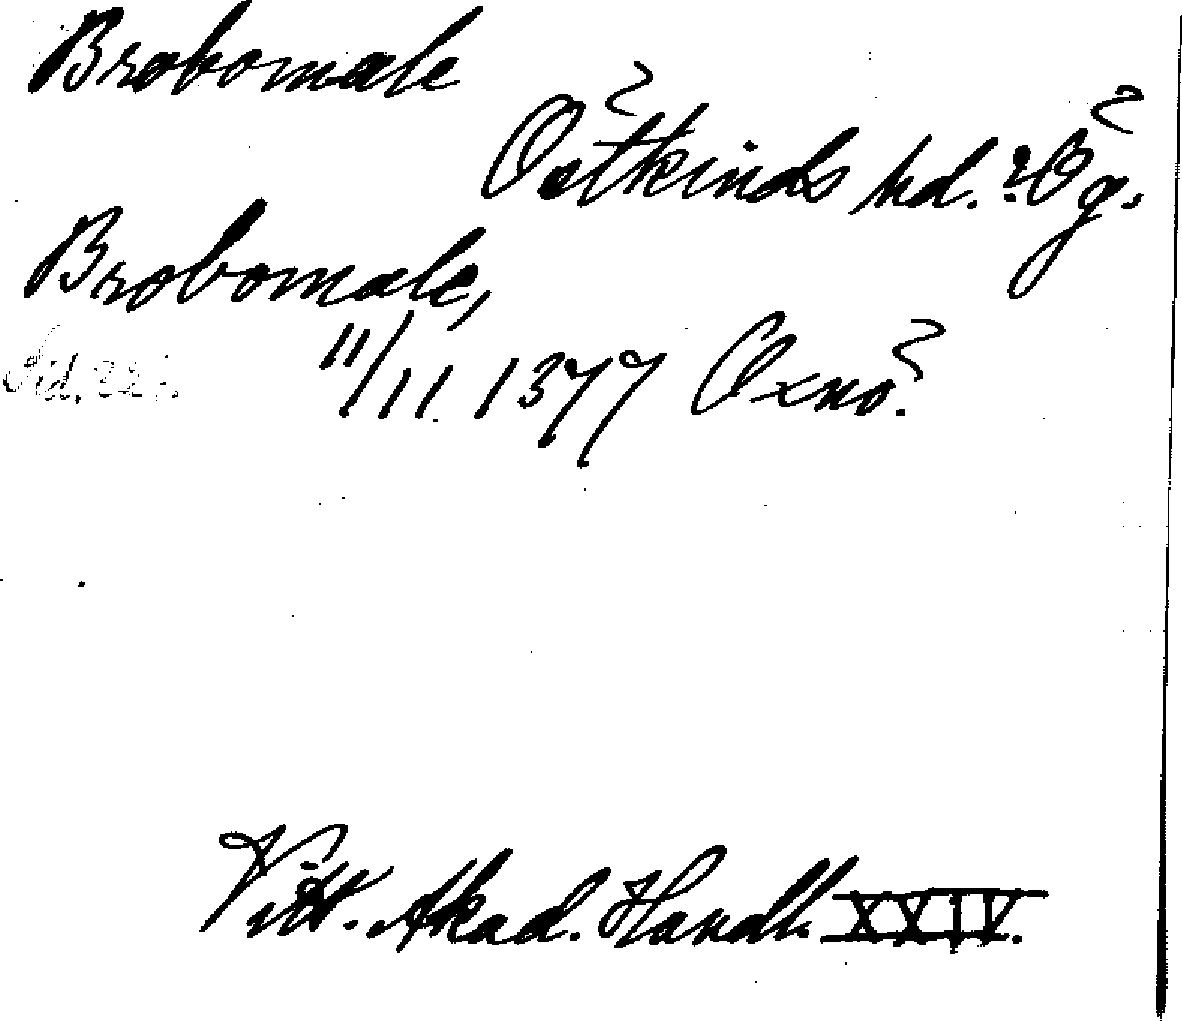 Brobomale
Östkinds hd. ? Ög.
Brobomale,
Sid. 22
11/11 1377 Oxnö.
Vitt. Akad. Handl. XXIV.